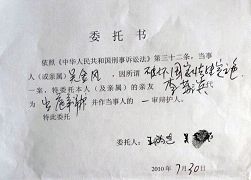 委托书
依照《中华人民共和国刑事诉讼法》第三十二条,当事
人(或亲属)吴金凤,因所谓破坏国家法律实施
一案,特委托本人(及亲属)的亲友
为出庭辩护并作当事人的一审辩护人。
特此委托
委托人:
2010年7月30日